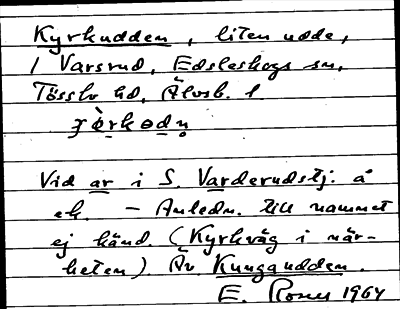 Kyrkudden, liten udde,
i Varsrud, Edsleskogs sn,
Tössbo hd, Älvsb. l.
Vid ar i S. Varderudstj. å
ek. – Anledn. till namnet
ej känd. (Kyrkväg i när-
heten). Äv. Kungaudden.
E. 1964